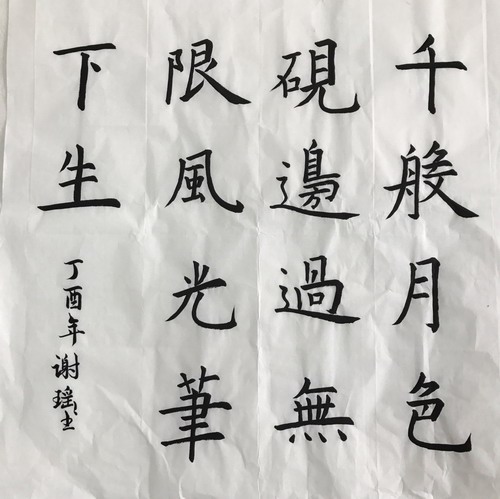 千般月色
硯邊過無
限風光筆
下生
丁酉年谢瑶书